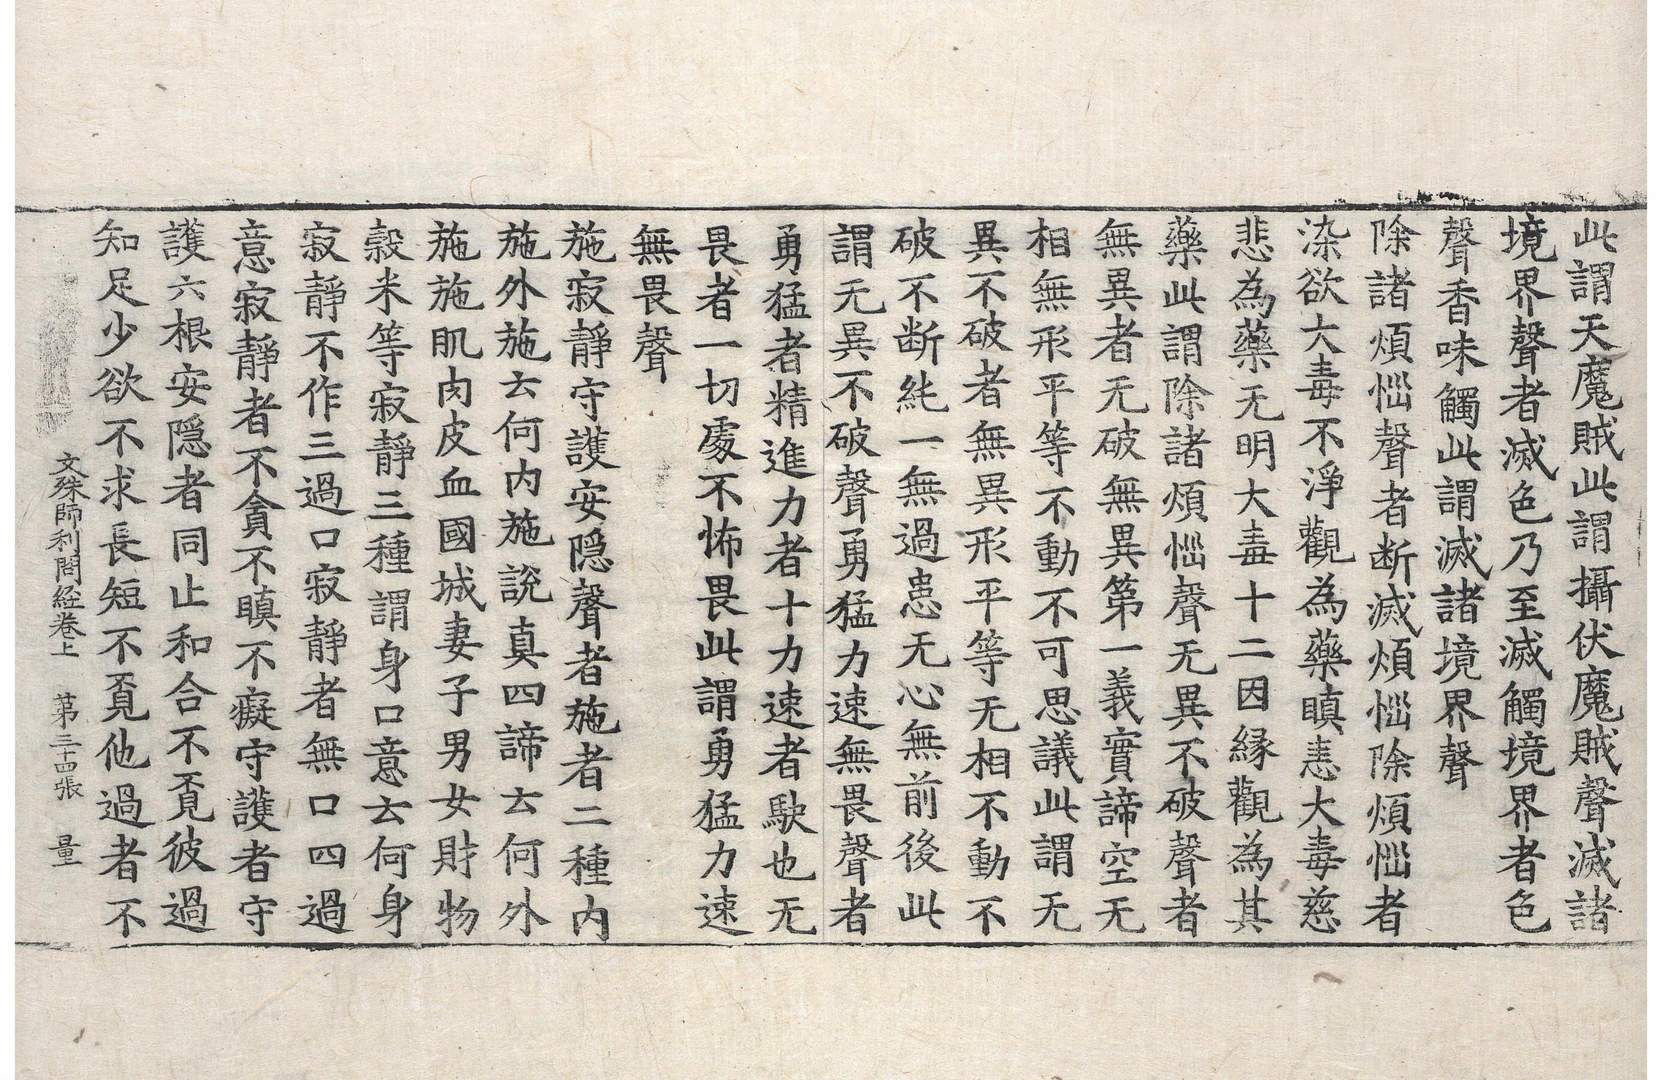 此謂天魔賊此謂攝伏魔賊聲滅諸
境界聲者滅色乃至滅觸境界者色
聲香味觸此謂滅諸境界聲
除諸煩惱聲者断滅煩惱除煩惱者
染欲大毒不淨觀為藥瞋恚大毒慈
悲為藥无明大毒十二因緣觀為其
藥此謂除諸煩惱聲无異不破聲者
無異者无破無異第一義實諦空无
相無形平等不動不可思議此謂无
異不破者無異形平等无相不動不
破不断純一無過患无心無前後此
謂无異不破聲勇猛力速無畏聲者
勇猛者精進力者十力速者駛也无
畏者一切處不怖畏此謂勇猛力速
無畏聲
施寂靜守護安隠聲者施者二種内
施外施云何内施說真四諦云何外
施施肌肉皮血國城妻子男女財物
穀米等寂靜三種謂身口意云何身
寂靜不作三過口寂靜者無口四過
意寂靜者不貪不瞋不癡守護者守
護六根安隠者同止和合不覔彼過
知足少欲不求長短不覔他過者不
文殊師利問經卷上　第三十四張　量